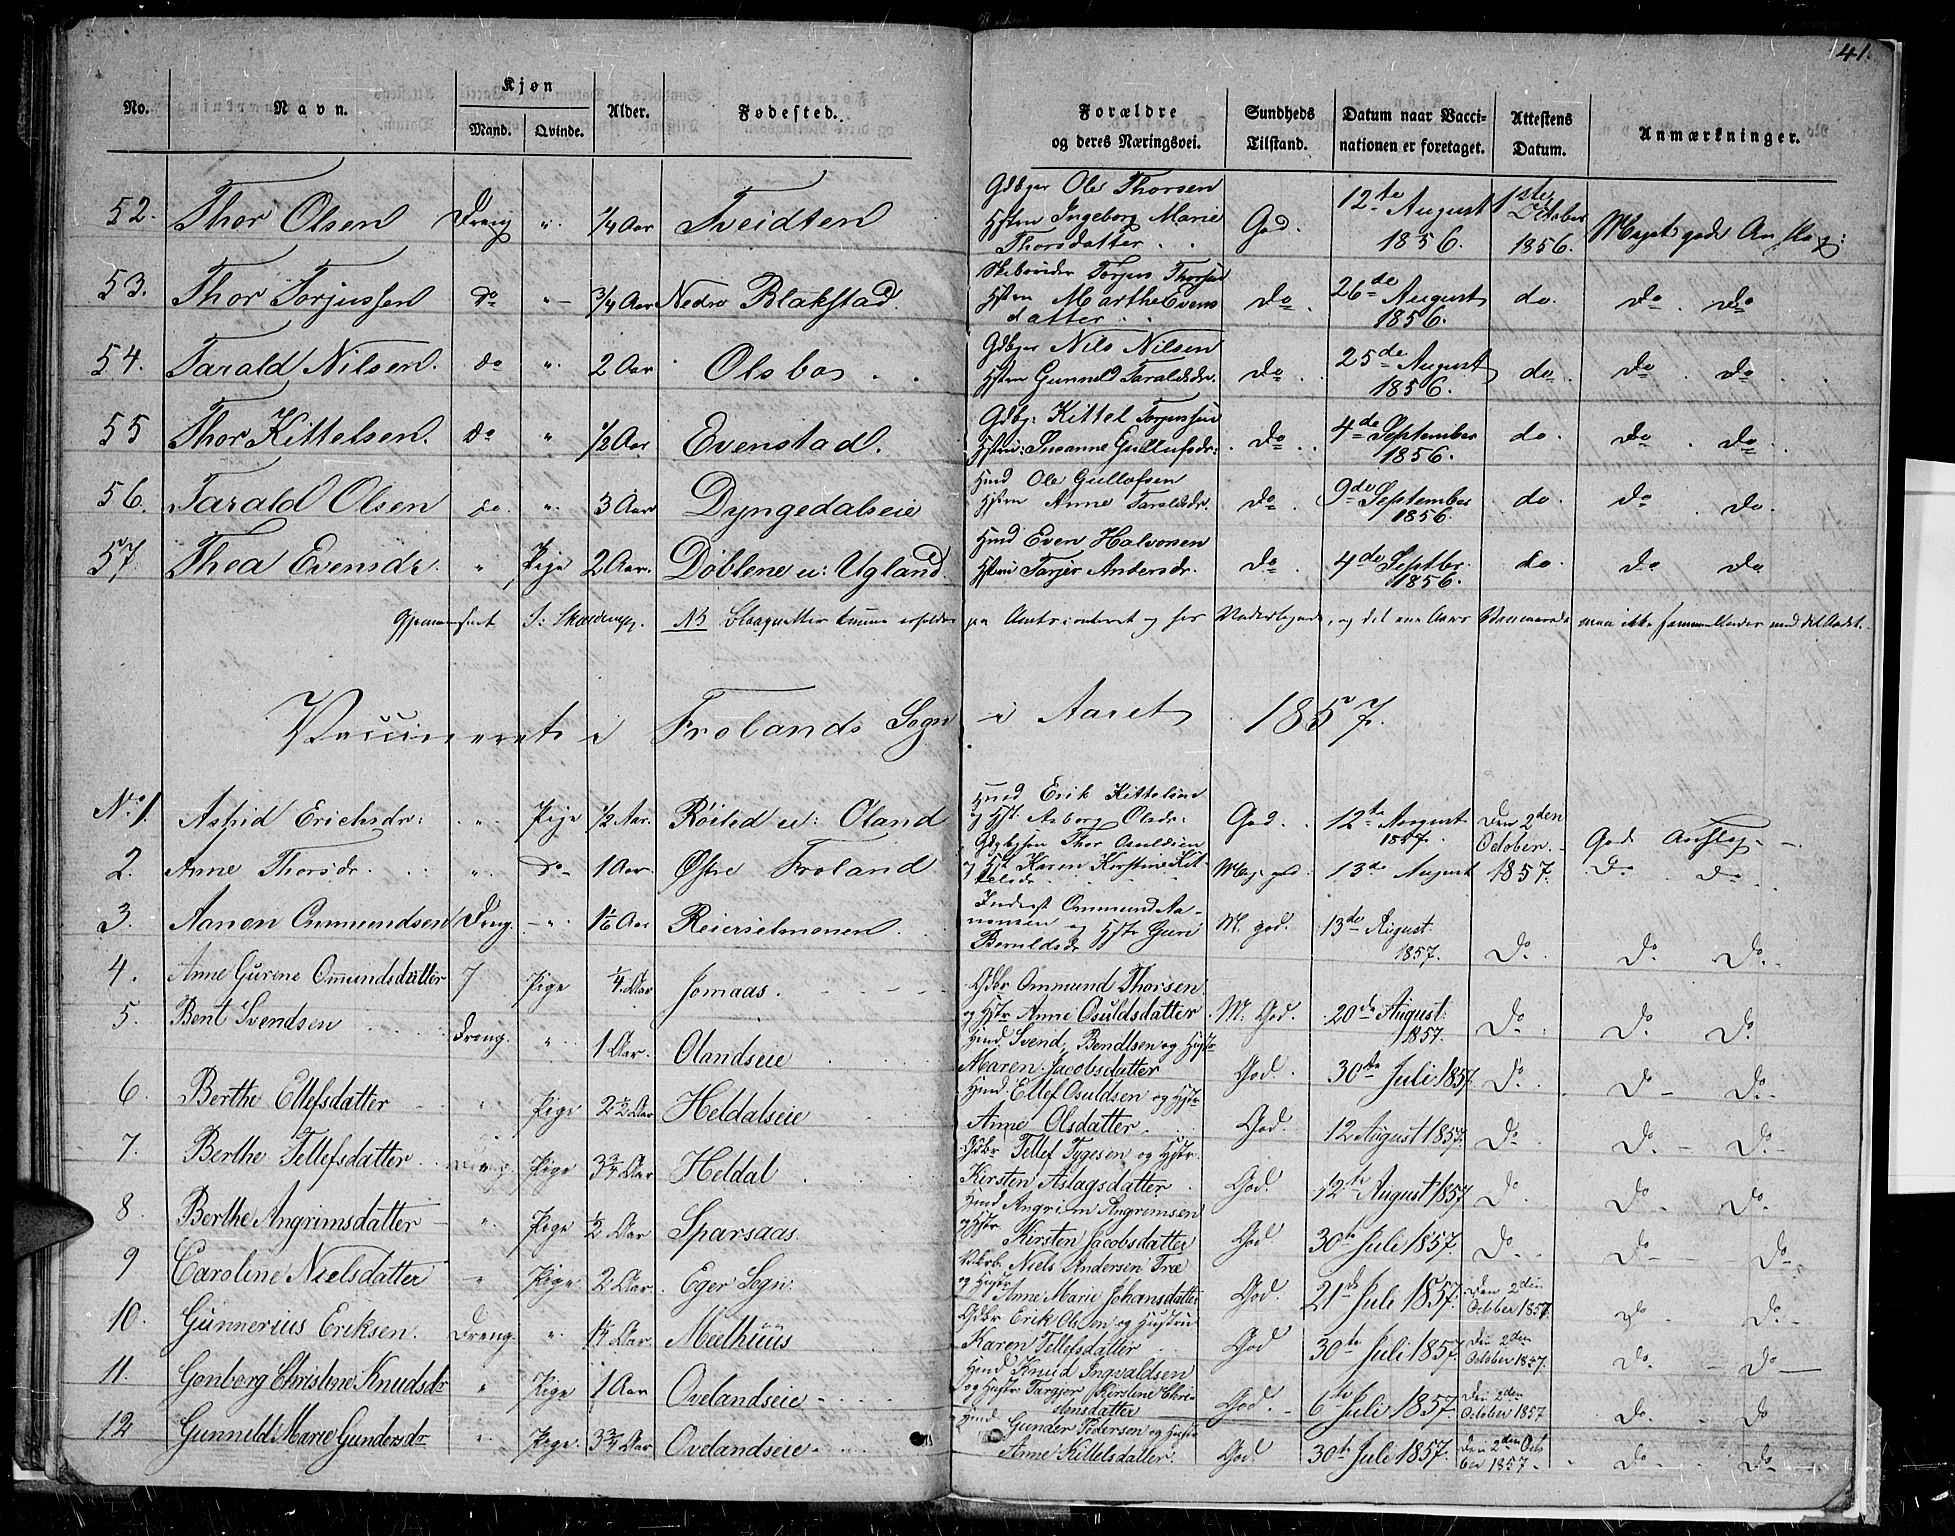 41.
No. Navn. Kjøn Alder. Fødested. Forældre Sundheds Datum naar Vacci- Attestens Anmærkninger.
Mand. Qvinde. og deres Næringsvei. Tilstand. nationen er foretaget. Datum.
52. Thor Olsen Dreng " 1/4 Aar Tveidten Gdbgr Ole Thorsen Hstrn Ingeborg Marie Thorsdatter God. 12te August 1856. 1ste October 1856. Meget gode Anslag:
53. Thor Torjussen do " 3/4 Aar Nedre Blakstad Torjus Thorsen Hstrn Marthe Evens datter Do 26de August 1856. do. Do Do
54. Tarald Nilsen. do " 2 Aar Olsbo Gdbgr Nils Nilsen Hstrn Gunneld Taraldsdr. Do 25de August 1856. do. Do Do
55 Thor Kittelsen. do " 1/2 Aar Evenstad. Gdbg: Kittel Torjussen Hstrn: Susanne Gullufsdr: Do 4de September 1856. do. Do Do
56. Tarald Olsen do. " 3 Aar Dyngedalseie Hmd Ole Gullofsen Hstrn Anne Taraldsdr. Do 9de September 1856. do. Do Do
57. Thea Evensdr. " Pige 2 Aar. Døblene u: Ugland. Hmd Even Halvorsen Hstrn Torjer Andersdr. Do 4de Septbr. 1856. do. Do Do
NB
Vaccinerede i Frolands Sogn i Aaret 1857.
No 1. Astrid Erichsdr: " Pige 1/2 Aar. Røilid u: Øland Hmd Erik Kittelsen og Hst. Asborg Olsdr: God. 12te August 1857. Den 2den October God Anslag
2. Anne Thorsdr. " Do 1 Aar. Østre Froland Thor Osuldsen og Hst Karen Kirstine Kittelsdr. Meg. god. 13de August 1857. Do Do
3. Aanon Ommundsen Dreng. " 1 1/6 Aar Reierselmonen Inderst Ommund Aanonsen og Hstr Guri Beruldsdr M. god. 13de August 1857. Do Do Do
4. Anne Gurine Omundsdatter " Pige 1/4 Aar Jomaas. Gdbr Ommund Thorsen og Hstr Anne Osuldsdatter M. God. 20de August 1857. Do Do Do
5. Bent Svendsen Dreng. " 1 Aar. Olandseie Hmd. Svend Bendtsen og Hustr Maren Jacobsdatter God. 30te Juli 1857 Do Do Do
6. Berthe Ellefsdatter " Pige 2 1/2 Aar Heldalseie Hmd. Ellef Osuldsen og Hstr Anne Olsdatter God. 12 August 1857. Do Do Do
7. Berthe Tellefsdatter Pige 3 3/4 Aar Heldal Gdbr Tellef Tygesen og Hstr. Kirsten Aslagsdatter God. 12te August 1857 Do Do Do
8. Berthe Angrimsdatter " Pige 1/2 Aar Sparsaas. Hmd Angrim Angrimsen og Hstr Kirsten Jacobsdatter God 30te Juli 1857 Do Do Do
9 Caroline Nielsdatter " Pige 2 Aar. Eger Sogn. Niels Andersen Træ og Hustr Anne Marie Johansdatter God. 21de Juli 1857. Den 2den October 1857. Do Do
10. Gunnerius Eriksen. Dreng. " Aar. Mælhuus Gdbr Erik Olsen og Hustrn Karen Tellefsdatter God 30te Juli 1857. Den 2den October 1857. Do Do
11. Gonborg Christene Knudsdr " Pige 1 Aar Ovelandseie Hmd Knud Ingvaldsen og Hustr Targjer Kirstine Christensdatter God. 6te Juli 1857. Den 2den October 1857 Do. Do
12 Gunneld Marie Gundersdr " Pige. 3 3/4 Aar Ovelandseie Hmd. Gunder Pedersen og Hustr Anne Kittelsdatter. God. 30te Juli 1857. Den 2den October 1857. Do Do